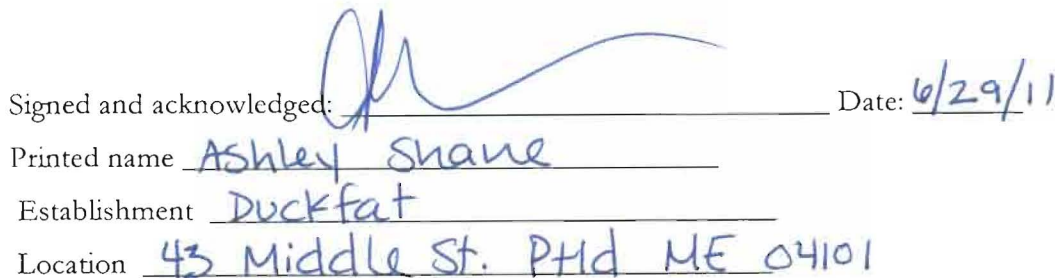 Signed and acknowledged: Date: 6/29/11
Printed name Ashley Shane
Establishment Duckfat
Location 43 Middle St. Ptld ME 04101